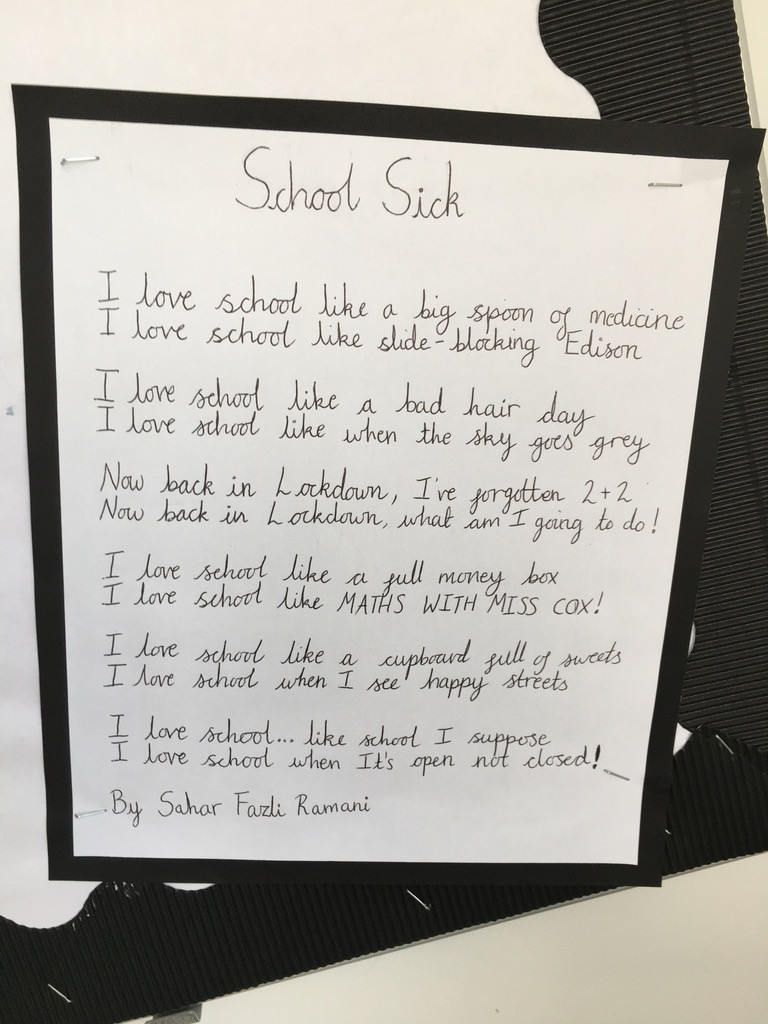 School Sick
I love school like a big spoon of medicine
I love school like slide-blocking Edison
I love school like a bad hair day
I love school like when the sky goes grey
Now back in Lockdown, I've forgotten 2+2
Now back in Lockdown, what am I going to do!
I love school like a full money box
I love school like MATHS WITH MISS COX!
I love school like a cupboard full of sweets
I love school when I see happy streets
I love school... like school I suppose
I love school when It's open not closed!
By Sahar Fazli Ramani